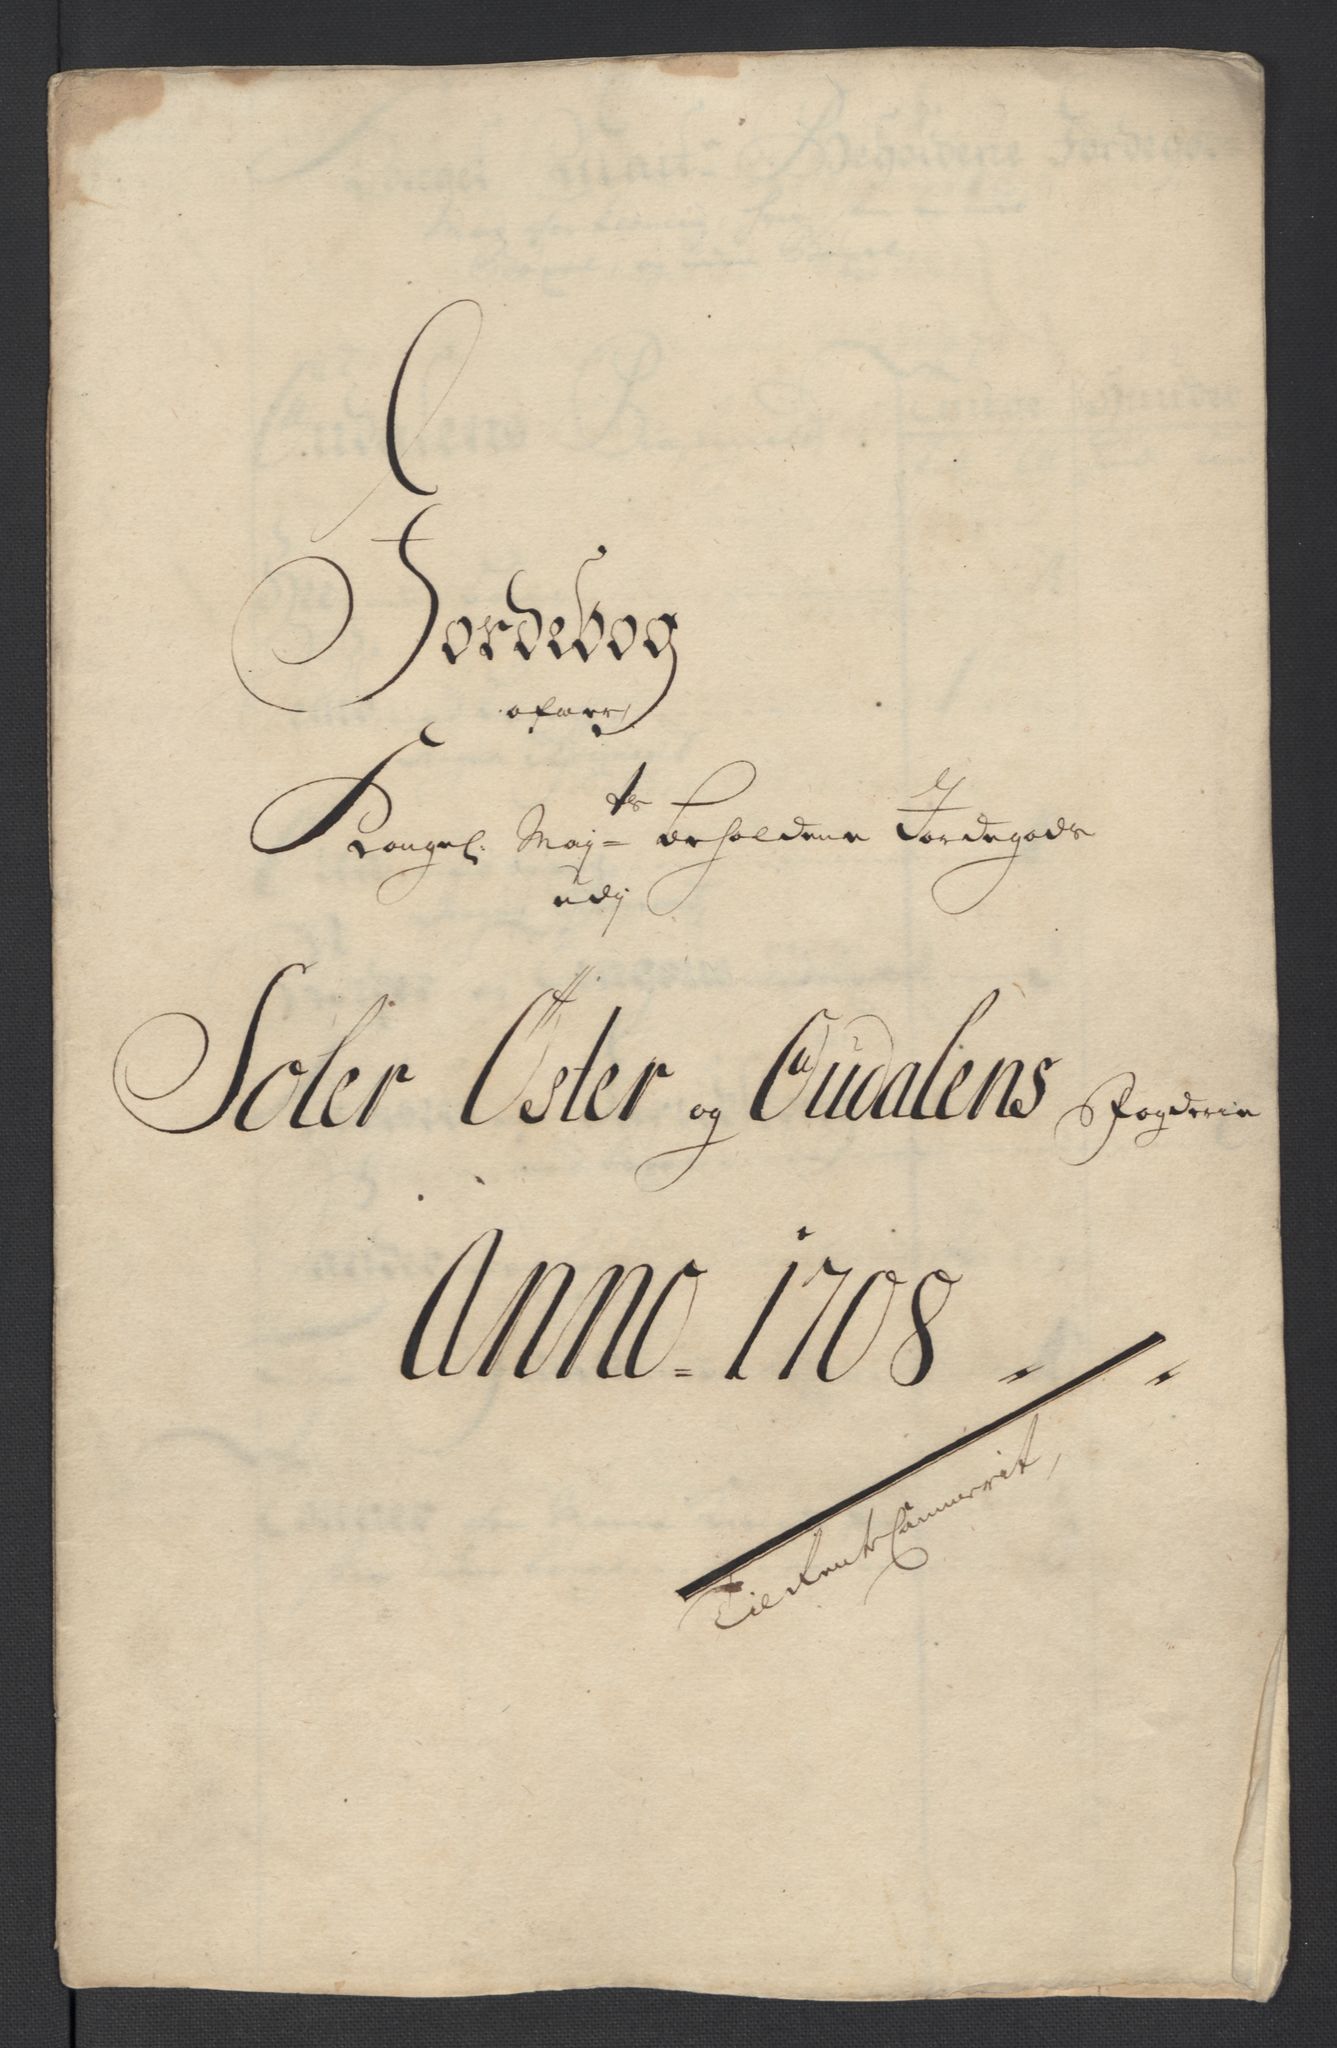 Jordebog
ofuer
Kongel: Maj=ts beholdene Jordegods
udj
Soler Öster og Oudalens Fogderie
Anno = 1708
Til Rente Cammerit,